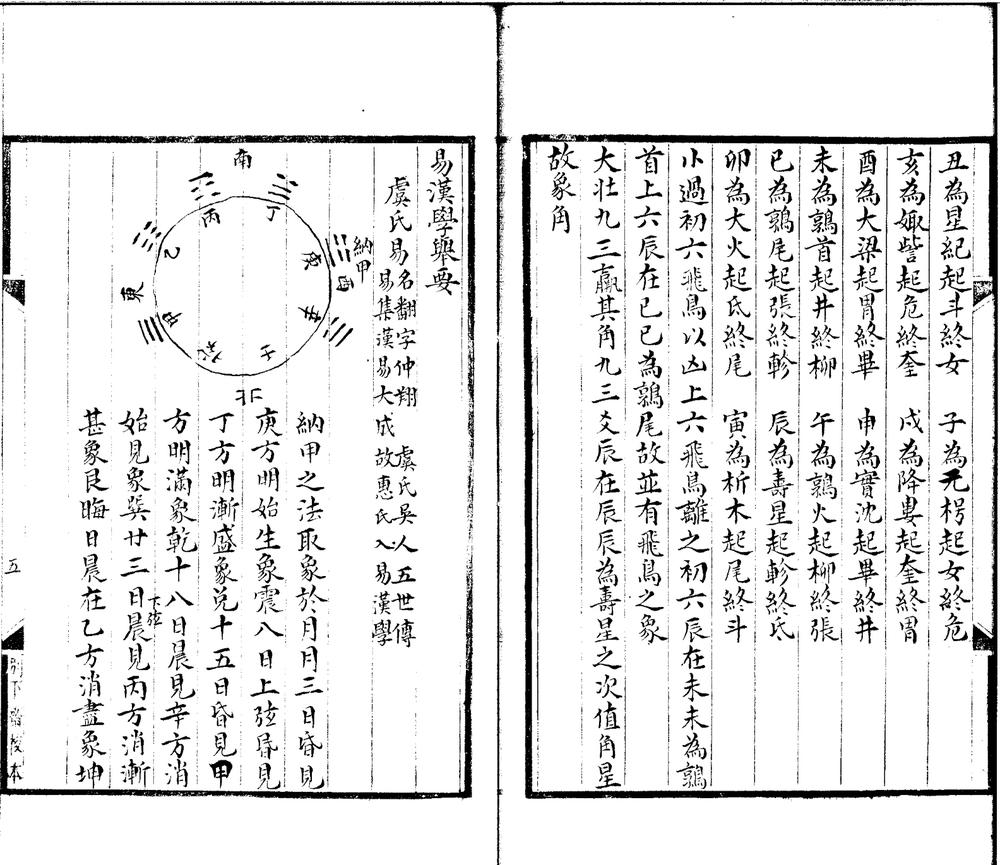 丑為星紀起斗終女　子為元枵起女終危
亥為娵訾起危終奎　戌為降婁起奎終胃
酉為大梁起胃終畢　申為實沈起畢終井
未為鶉首起井終柳　午為鶉火起柳終張
巳為鶉尾起張終軫　辰為壽星起軫終氐
卯為大火起氐終尾　寅為析木起尾終斗
小過初六飛鳥以凶上六飛鳥離之初六辰在未未為鶉
首上六辰在巳巳為鶉尾故並有飛鳥之象
大壯九三羸其角九三爻辰在辰辰為壽星之次值角星
故象角
易漢學舉要
虞氏易
名翻字仲翔　虞氏吳人五世傳
易集漢易大成　故惠氏入易漢學
納甲
南
丁
丙
庚
西
乙
辛
東
甲
壬
癸
北
納甲之法取象於月月三日昏見
庚方明始生象震八日上弦昏見
丁方明漸盛象兌十五日昏見甲
方明滿象乾十八日晨見辛方消
始見象巽廿三日下弦晨見丙方消漸
甚象艮晦日晨在乙方消盡象坤
五
別下齋校本